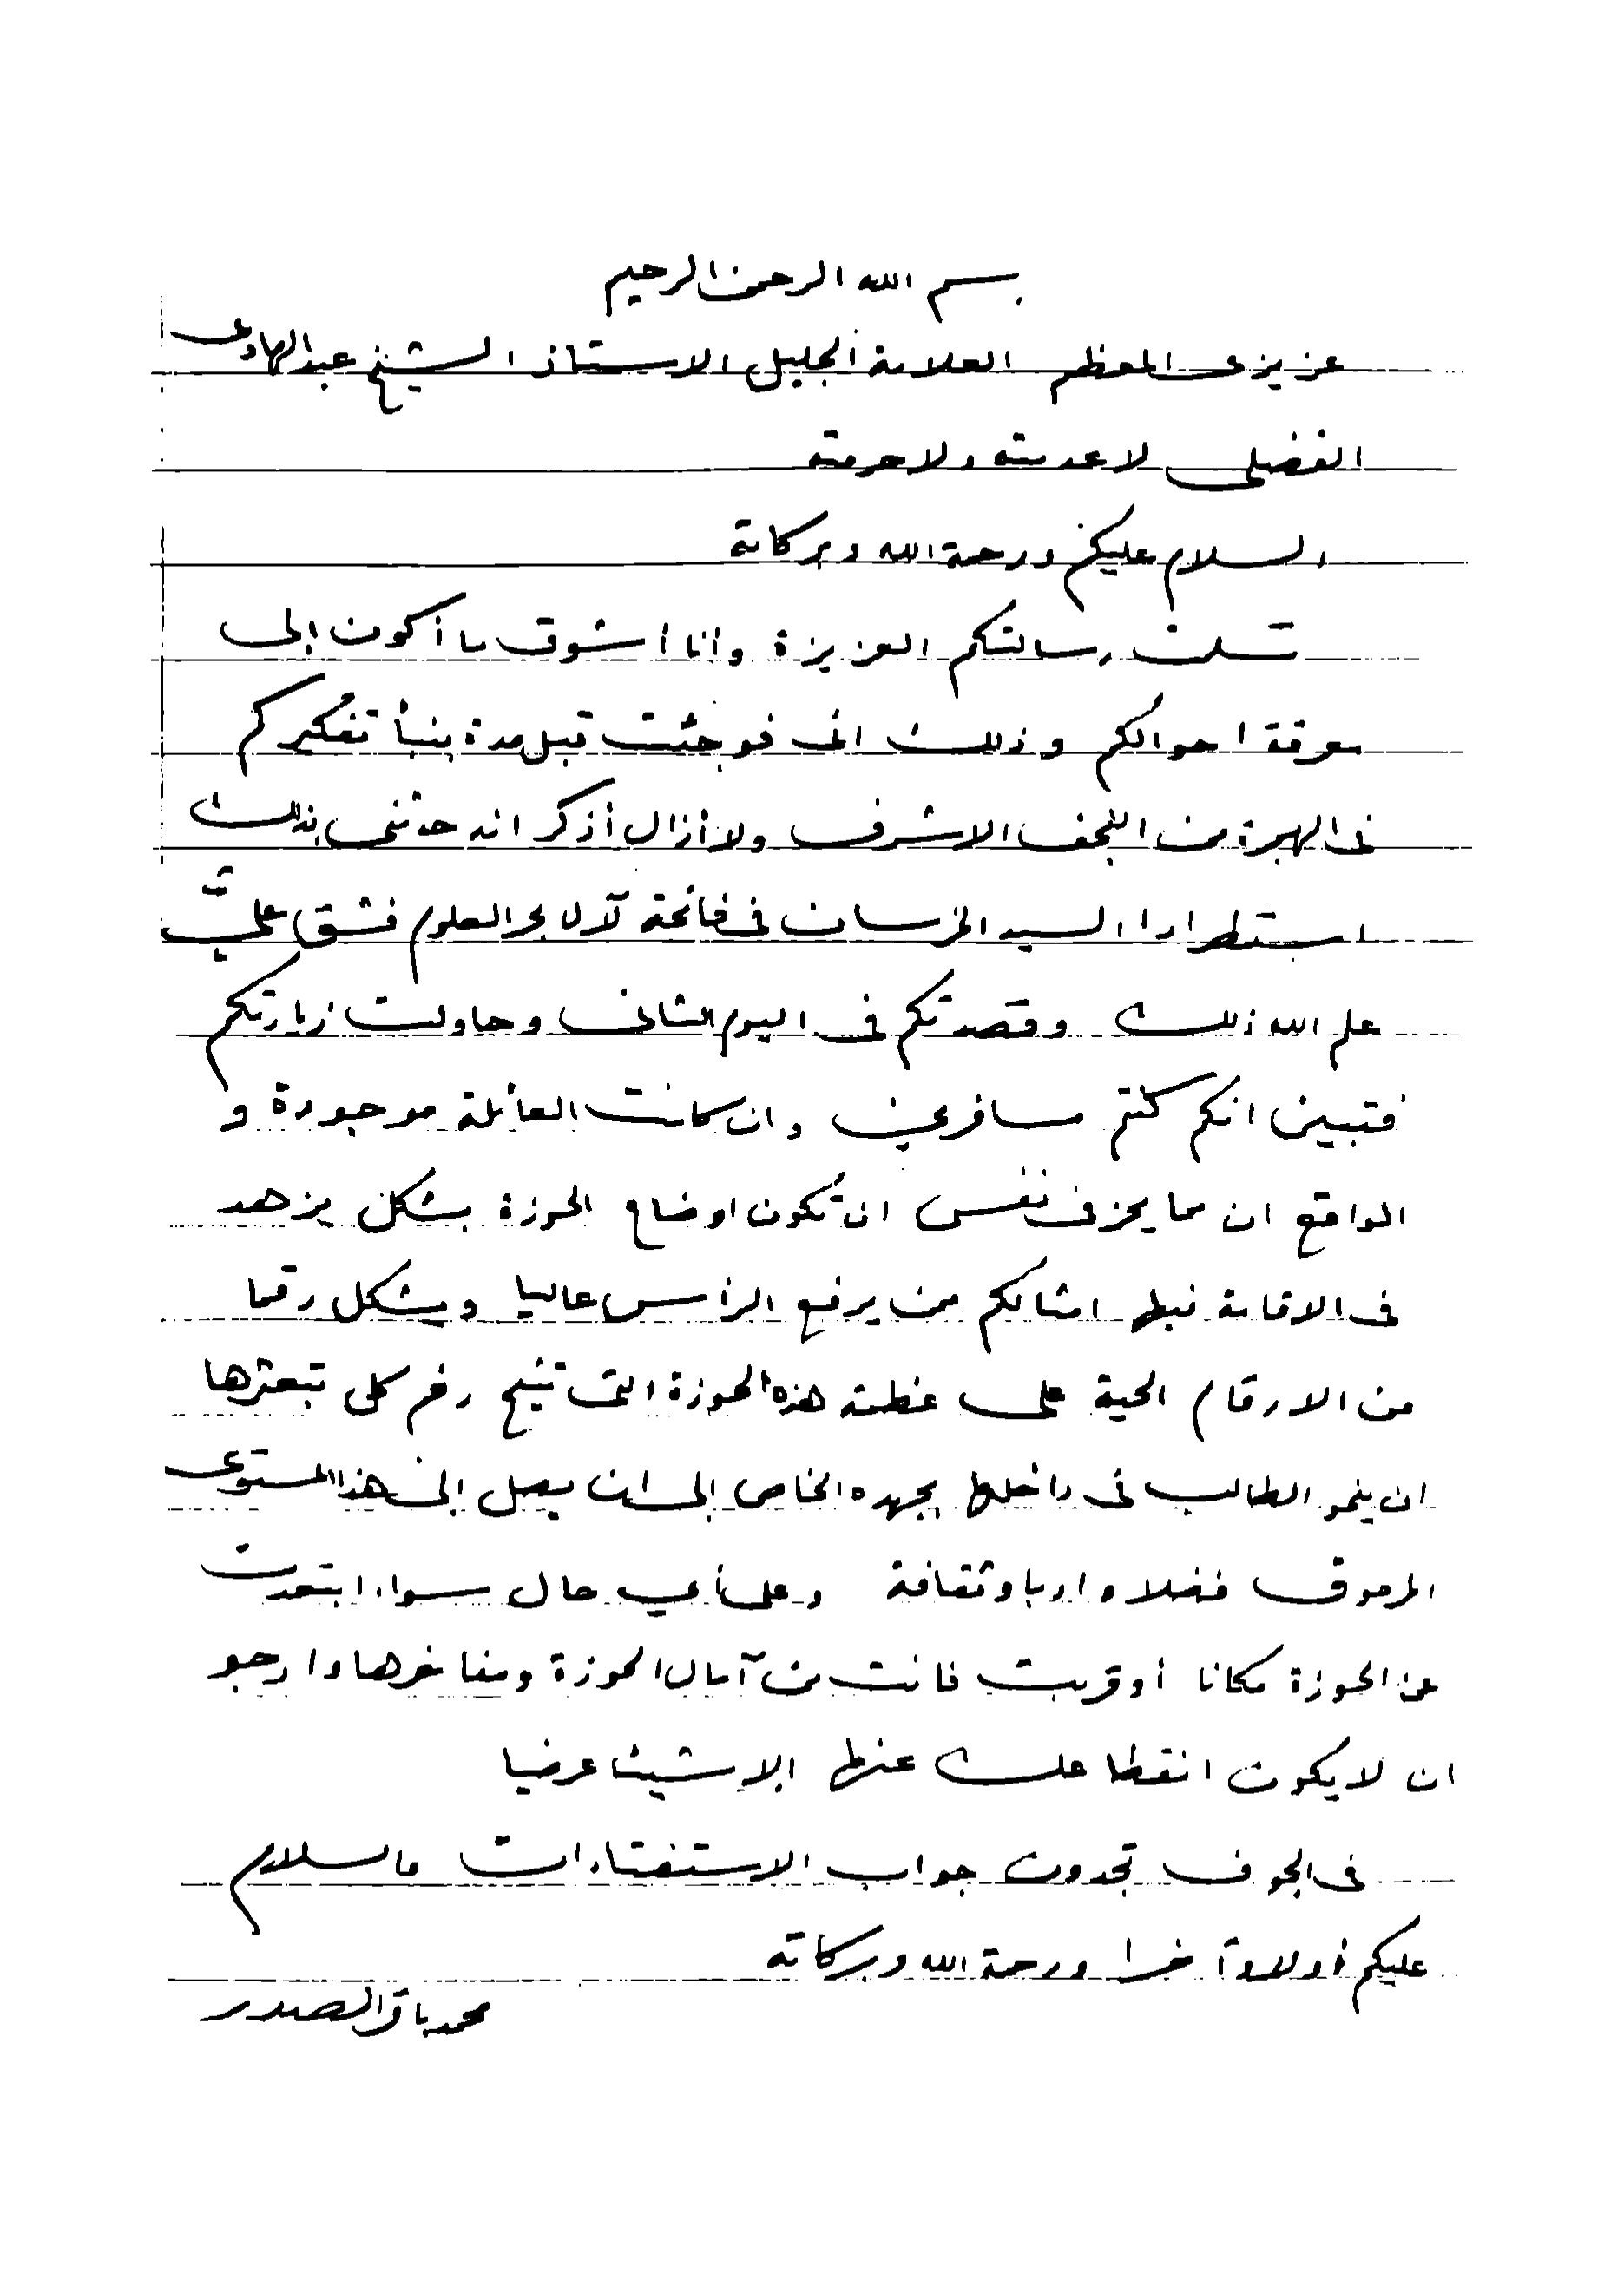 بسم الله الرحمن الرحيم
عزيزي المعظم العلامة الجليل الاستاذ الشيخ عبد الهادي
الفضلي لا عدمته ولا حرمته
السلام عليكم ورحمة الله وبركاته
تسلمت رسالتكم العزيزة وأنا أشوق ما أكون إلى
معرفة احوالكم وذلك اني فوجئت قبل مدة بنبأ تفكيركم
في الهجرة من النجف الاشرف ولا أزال أذكر انه حدثني بذلك
استطرادا السيد الخرسان في فاتحة لآل بحر العلوم فشق عليّ
علم الله ذلك وقصدتكم في اليوم الثاني وحاولت زيارتكم
فتبين انكم كنتم مسافرين وان كانت العائلة موجودة و
الواقع ان مما يحز في نفسي ان تكون اوضاع الحوزة بشكل يزهد
في الاقامة فيها امثالكم ممن يرفع الرأس عاليا ويشكل رقما
من الارقام الحية على عظمة هذه الحوزة التي تتيح رغم كل تبعثرها
ان ينمو الطالب في داخلها بجهده الخاص إلى ان يصل إلى هذا المستوى
المرموق فضلا وادبا وثقافة وعلى أي حال سواء ابتعدت
عن الحوزة مكانا أو قربت فانت من آمال الحوزة ومفاخرها وارجو
ان لا يكون انقطاعك عنها إلا شيئا عرضيا
في الجوف تجدون جواب الاستفتاءات والسلام
عليكم أولا وآخرا ورحمة الله وبركاته
محمد باقر الصدر